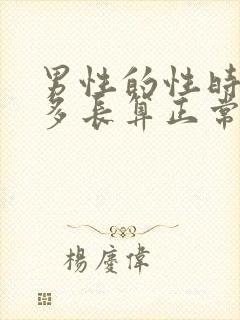 男性的性時
多長算正常
楊慶偉